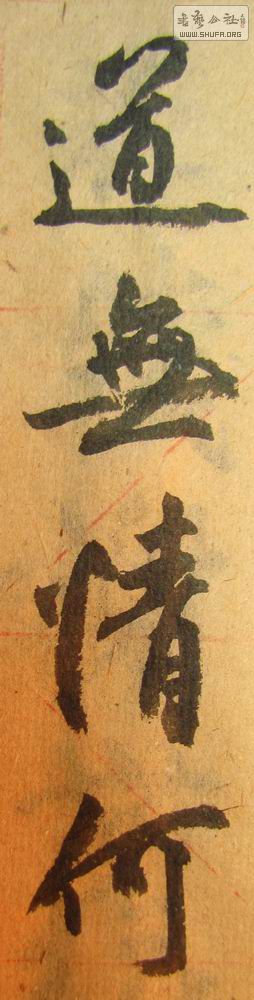 書藝公社
WWW.SHUFA.ORG
道無情何